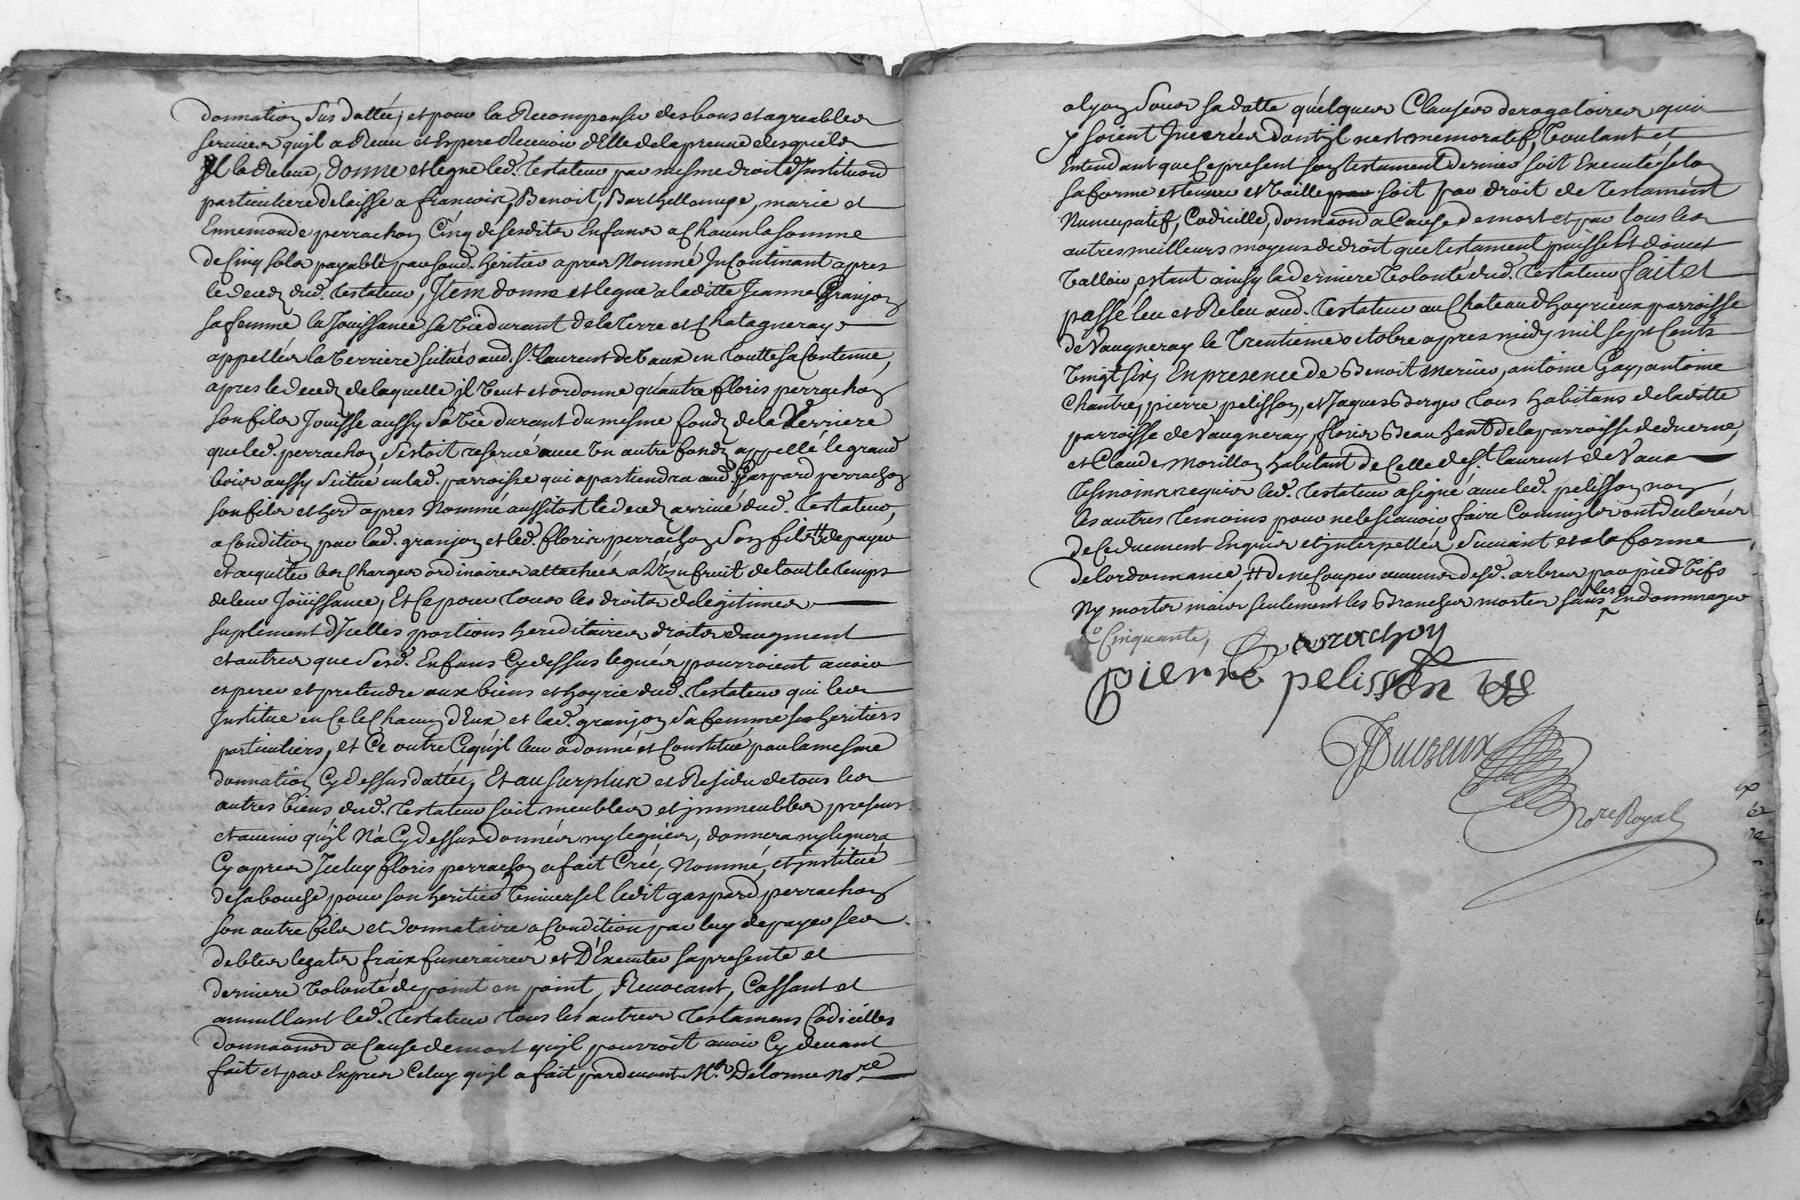 donnation sus dattée, et pour la Recompense des bons et agreables
services qu'jl a Receu et Espere Recevoir d'Elle de la preuve desquels
jl la Releve, donne et legue led. testateur par mesme droit d'Institu͠on
particuliere delaisse a francois, Benoit, Barthellemye, marie et
Ennemonde perrachon Cinq de sesdits Enfans a Chacun la somme
de Cinq sols payable par sond. heritier apres Nommé Incontinant apres
le deceds dud. testateur, Jtem donne et legue a laditte Jeanne Granjon
sa femme la Jouissance sa vie durant de la terre et Chatagneray
appellés la verriere situés aud. St. laurent de vaux en toutte sa Contenue,
apres le deceds de laquelle jl veut et ordonne qu'autre floris perrachon
son fils Jouisse aussy sa vie durant du mesme fonds de la Verriere
que led. perrachon s'estoit reservé avec un autre fonds appellé le grand
bois aussy scitué en lad. parroisse qui apartiendra aud. Gaspard perrachon
son fils et herd. apres Nommé aussitost le deceds arrivé dud. testateur,
a Condition par lad. granjon et led. floris perrachon son fils # de payer
et acquitter les Charges ordinaires attachées a l'Uzufruit de tout le temps
de leur Joüissance, Et Ce pour tous les droits de legitimes
suplement d'Jcelles portions hereditaires droits d'augment
et autres que sesd. Enfans Cy dessus legués pourroient avoir
esperer et pretendre aux biens et hoyrie dud. testateur qui les
Institue en Ce le Chacun d'Eux et lad. granjon sa femme ses heritiers
particuliers, et Ce outre Ce qu'jl leur a donné et Constitué par la mesme
donnation Cy dessus dattée, Et au surplus et Residu de tous les
autres biens dud. testateur soit meubles et jmmeubles presens
et avenir qu'jl N'a Cy dessus donnés ny legués, donnera ny leguera
Cy apres Jceluy floris perrachon a fait Créé, Nommé, et jnstitué
de sa bouche pour son heritier Universel ledit gaspard perrachon
son autre fils et donnataire a Condition par luy de payer ses
debtes legats fraix funeraires et D'Executer sa presente et
derniere volonté de point en point, Revocant, Cassant et
annullant led. testateur tous les autres testamens Codicilles
donna͠ons a Cause de mort qu'jl pourroit avoir Cy devant
fait et par Expres Celuy qu'jl a fait pardevant Me. Delorme nore
a lyon sous sa datte quelques Clauses derogatoires qui
y soient Jnserées dont jl n'est memoratif, voulant et
Entendant que Ce present son testament dernier soit Executé selon
sa forme et teneur et vaille par soit par droit de testament
Nuncupatif, Codicille, donna͠on a Cause de mort et par tous les
autres meilleurs moyens de droit que testament puisse Et doive
valloir, estant ainsy la derniere volonté dud. testateur fait et
passé leu et Releu aud. testateur au Chateau d'hoyrieux parroisse
de Vaugneray le trentieme octobre apres midy mil sept Cents
vingt six, En presence de Benoit mercier, antoine Gay, antoine
Chantre, pierre pelisson, et Jaques Berger tous habitans de laditte
parroisse de Vaugneray, floris Beau hant de la parroisse de duerne,
et Claude morillon habitant de Celle de St. laurent de Vaux
tesmoins requis led. testateur a signé avec led. pelisson non
les autres temoins pour ne le sçavoir faire Comm'jls ont declarés
de Ce duement Enquis et jnterpellés suivant et a la forme
de l'ordonnance, # de ne Couper aucuns desd. arbres par pied vifs
Ny morts mais seulement les Branches mortes sans les Endommager
Cinquante,
perrachon
pierre pelisson
Ducreux
nore Royal